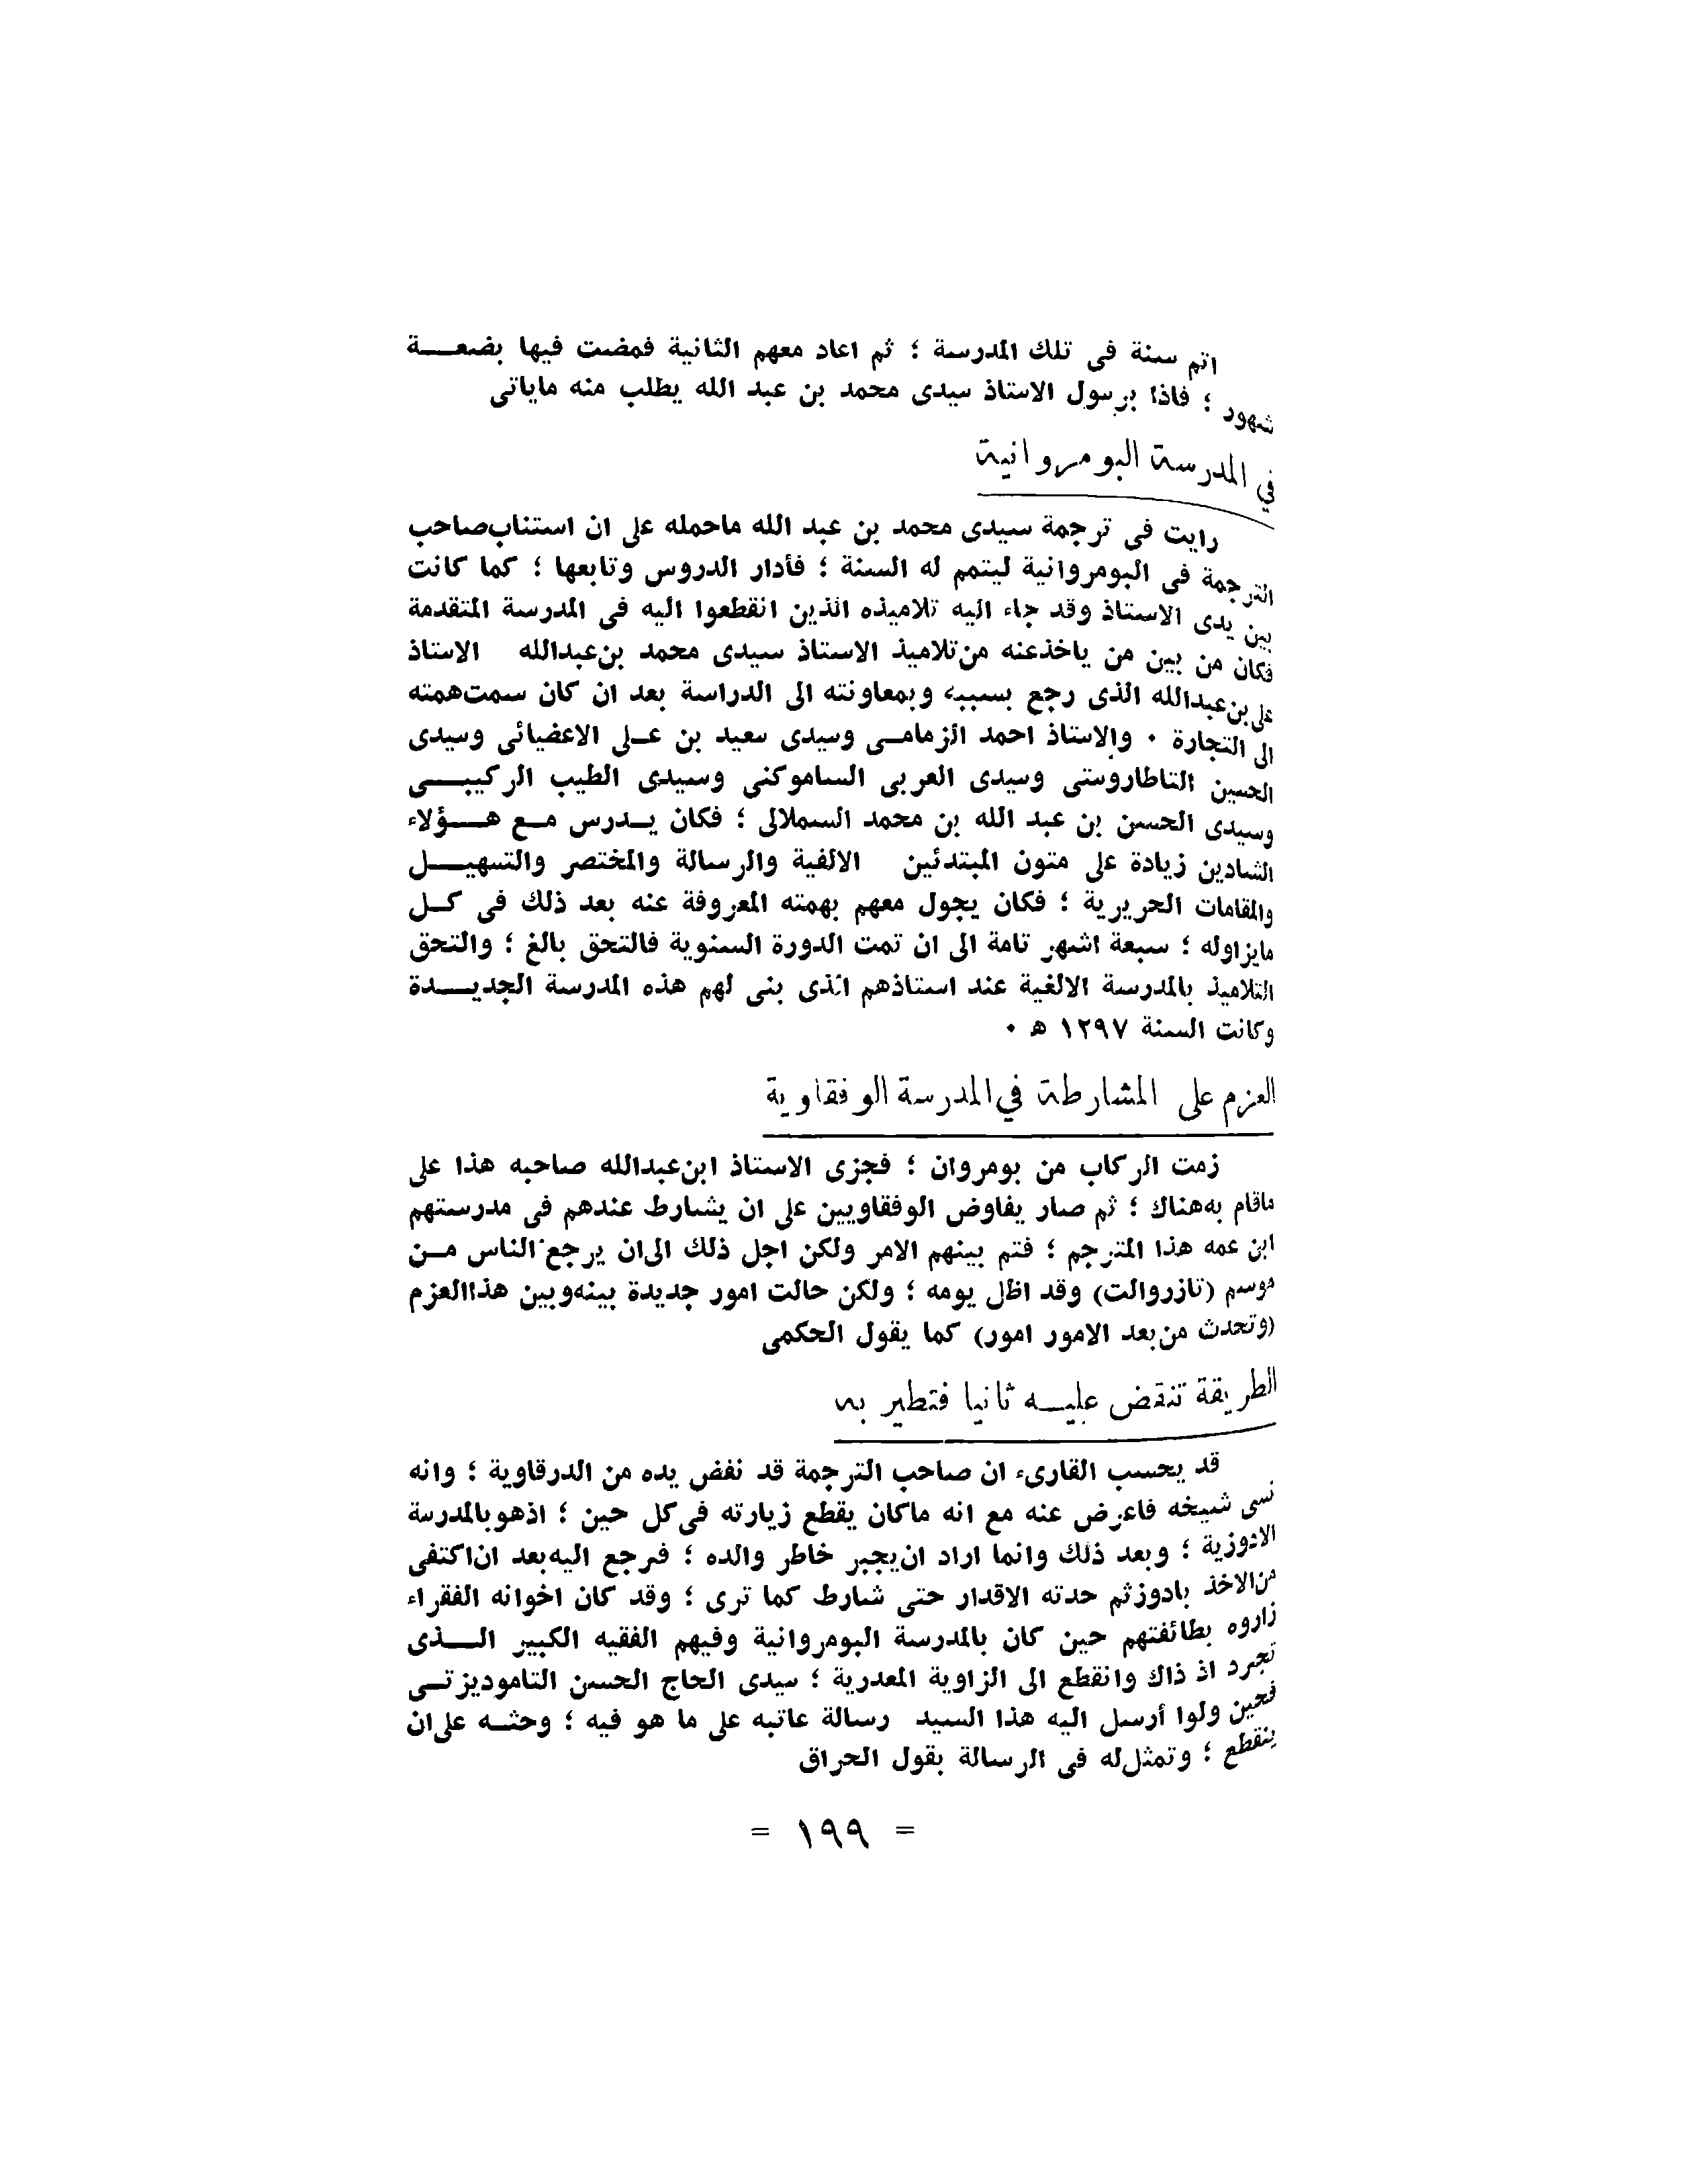 اتم سنة فى تلك المدرسة ؛ ثم اعاد معهم الثانية فمضت فيها بضعـــة
شهود ؛ فاذا برسول الاستاذ سيدى محمد بن عبد الله يطلب منه ماياتى
في المدرسة البومروانية
رايت فى ترجمة سيدى محمد بن عبد الله ماحمله على ان استناب صاحب
الترجمة فى البومروانية ليتمم له السنة ؛ فأدار الدروس وتابعها ؛ كما كانت
بين يدى الاستاذ وقد جاء اليه تلاميذه الذين انقطعوا اليه فى المدرسة المتقدمة
فكان من بين من ياخذعنه من تلاميذ الاستاذ سيدى محمد بن عبدالله الاستاذ
على بن عبدالله الذى رجع بسببه وبمعاونته الى الدراسة بعد ان كان سمت همته
الى التجارة ٠ والاستاذ احمد الزمامـى وسيدى سعيد بن عـلى الاعضيائى وسيدى
الحسين التاطاروستى وسيدى العربى الساموكنى وسيدى الطيب الركيبـــى
وسيدى الحسن بن عبد الله بن محمد السملالى ؛ فكان يـدرس مـع هــؤلاء
الشادين زيادة على متون المبتدئين الالفية والرسالة والمختصر والتسهيـــل
والمقامات الحريرية ؛ فكان يجول معهم بهمته المعروفة عنه بعد ذلك فى كـل
مايزاوله ؛ سبعة اشهر تامة الى ان تمت الدورة السنوية فالتحق بالغ ؛ والتحق
التلاميذ بالمدرسة الالغية عند استاذهم الذى بنى لهم هذه المدرسة الجديـــدة
وكانت السنة ١٢٩٧ ه ٠
العزم على المشارطة في المدرسة الوفقاوية
زمت الركاب من بومروان ؛ فجزى الاستاذ ابن عبدالله صاحبه هذا على
ماقام به هناك ؛ ثم صار يفاوض الوفقاويين على ان يشارط عندهم فى مدرستهم
ابن عمه هذا المترجم ؛ فتم بينهم الامر ولكن اجل ذلك الى ان يرجع الناس مـن
موسم (تازروالت) وقد اظل يومه ؛ ولكن حالت امور جديدة بينه وبين هذا العزم
(وتحدث من بعد الامور امور) كما يقول الحكمى
الطريقة تنقض عليــه ثانيا فتطير به
قد يحسب القارىء ان صاحب الترجمة قد نفض يده من الدرقاوية ؛ وانه
نسى شيخه فاعرض عنه مع انه ماكان يقطع زيارته فى كل حين ؛ اذهو بالمدرسة
الادوزية ؛ وبعد ذلك وانما اراد ان يجبر خاطر والده ؛ فرجع اليه بعد ان اكتفى
من الاخذ بادوز ثم حدته الاقدار حتى شارط كما ترى ؛ وقد كان اخوانه الفقراء
زاروه بطائفتهم حين كان بالمدرسة البومروانية وفيهم الفقيه الكبير الـــذى
تجرد اذ ذاك وانقطع الى الزاوية المعدرية ؛ سيدى الحاج الحسن التاموديزتـى
فحين ولوا أرسل اليه هذا السيد رسالة عاتبه على ما هو فيه ؛ وحثــه على ان
ينقطع ؛ وتمثل له فى الرسالة بقول الحراق
= ١٩٩ =